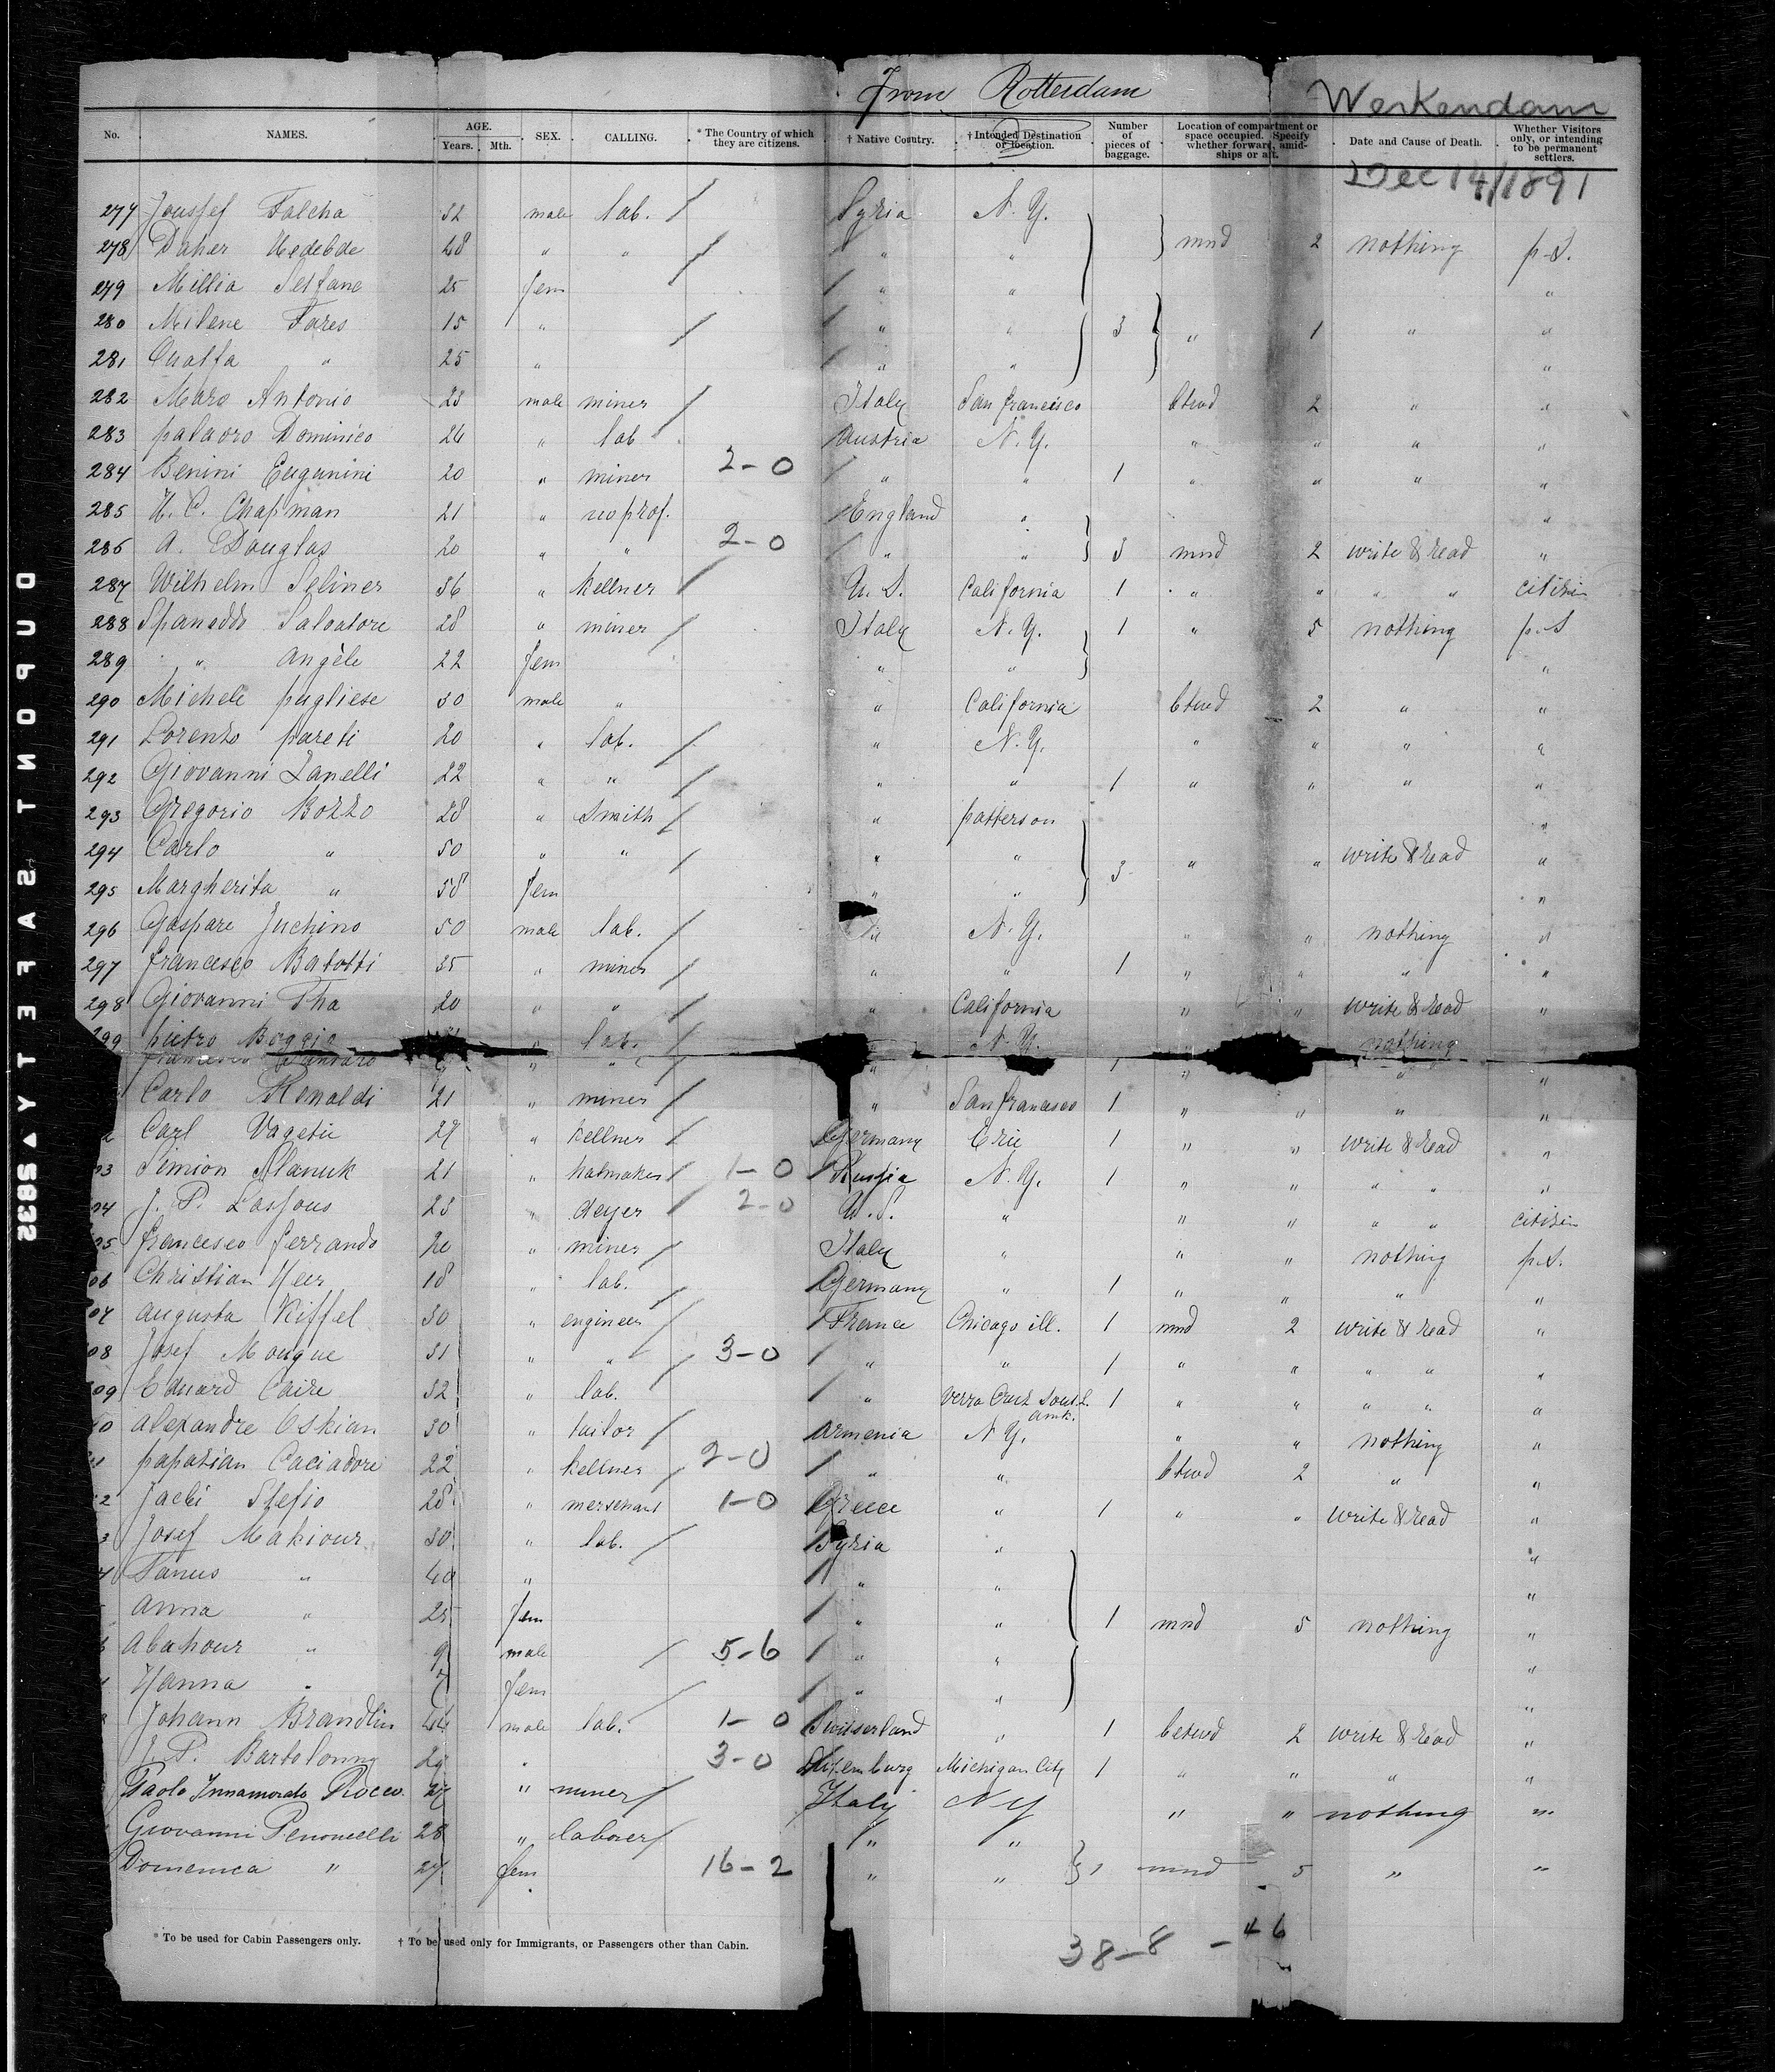 From Rotterdam
Werkendam
No. NAMES. AGE. Years. Mth. SEX. CALLING. * The Country of which they are citizens. † Native Country. † Intended Destination or location. Number of pieces of baggage. Location of compartment or space occupied. Specify whether forward, amidships or aft. Date and Cause of Death. Whether Visitors only, or intending to be permanent settlers.
Dec 14/1891
277 Joussef Falcha 32 male lab. / Syria N. Y.
278 Daher 48 " " / " " mnd 2 nothing p.S.
279 Millia Seffane 25 fem / " " "
280 Milene Fares 15 " / / " " 3 " 1 " "
281 " 25 " / " " "
282 Maro Antonio 23 male miner / Italy San francisco btwd 2 " "
283 palaoro Dominico 26 " lab. Austria N. Y. " " " "
284 Benini Eugunini 20 " miner 2-0 / " " 1 " " " "
285 H. C. Chapman 21 " no prof. / England " "
286 A. Douglas 20 " " 2-0 / " " 3 mnd 2 write & read "
287 Wilhelm Seliner 36 " kellner / U. S. California 1 " " " " citizin
288 Spaneddo Salvatore 28 " miner / Italy N. Y. 1 " 5 nothing p.S
289 " Angèle 22 fem " " "
290 Michele pugliese 30 male " " California btwd 2 " "
291 Lorenzo pareti 20 " lab. / " N. Y. " " " "
292 Giovanni Zanelli 22 " " / " " 1 " " " "
293 Gregorio Bozzo 28 " Smith / " patterson "
294 Carlo " 50 " " / " " 3 " " write & read "
295 Margherita " 58 fem " " "
296 Gaspare Juchino 50 male lab. / N. Y. " " nothing "
297 francesco Batotti 35 " miner / " " 1 " " " "
298 Giovanni Tha 20 " " / " California " " write & read "
99 pietro Boggio " lab. / N. Y. nothing
francesco " " / " 1 " " "
Carlo Renaldi 21 " miner / " San francisco 1 " " " "
2 Carl Vagetie 27 " kellner / Germany Erie 1 " " write & read "
03 Simion Slanuk 21 " hatmaker / 1-0 / Russia N. Y. 1 " " " " "
04 J. P. Lassous 23 " deyer / 2-0 U. S. " " " " " citizin
05 francesco ferrando 20 " miner / Italy " " " nothing p.S.
06 Christian Heer 18 " lab. / Germany " 1 " " " "
07 augusta Kiffel 30 " engineer / / France Chicago ill. 1 mnd 2 write & read "
08 Josef Mougue 31 " " / 3-0 / " " 1 " " " " "
09 Eduard Caire 32 " lab. / " Verra Cruz South 1 " " " " "
amk.
0 alexandre Oskian 30 " tailor / Armenia N Y. " " nothing "
papatian Caciadore 22 " kellner / 2-0 / " " btwd 2 " "
2 Jachi Stefio 28 " mersehant 1-0 Greece " 1 " " write & read "
3 Josef Makiour 30 " lab. / Syria " "
4 Fanus " 40 " / " " "
anna " 25 fem / " " 1 mnd 5 nothing "
abahour " 9 male / 5-6 / " " "
Hanna " 7 fem / / " " "
Johann Brandlin 44 male lab. 1-0 Switserland " 1 betwd 2 write & read "
J. P. Bartolonny 29 " 3-0 Luxemburg Michigan City 1 " " " "
Paolo Innamorato Rocco. 27 " miner / Italy N Y " " nothing "
Giovanni Penoncelli 28 " laborer / / " "
Domenica " 24 fem 16-2 " " 1 mnd 5 " "
38-8 - 46
* To be used for Cabin Passengers only. † To be used only for Immigrants, or Passengers other than Cabin.
DUPONT SAFETY 5835